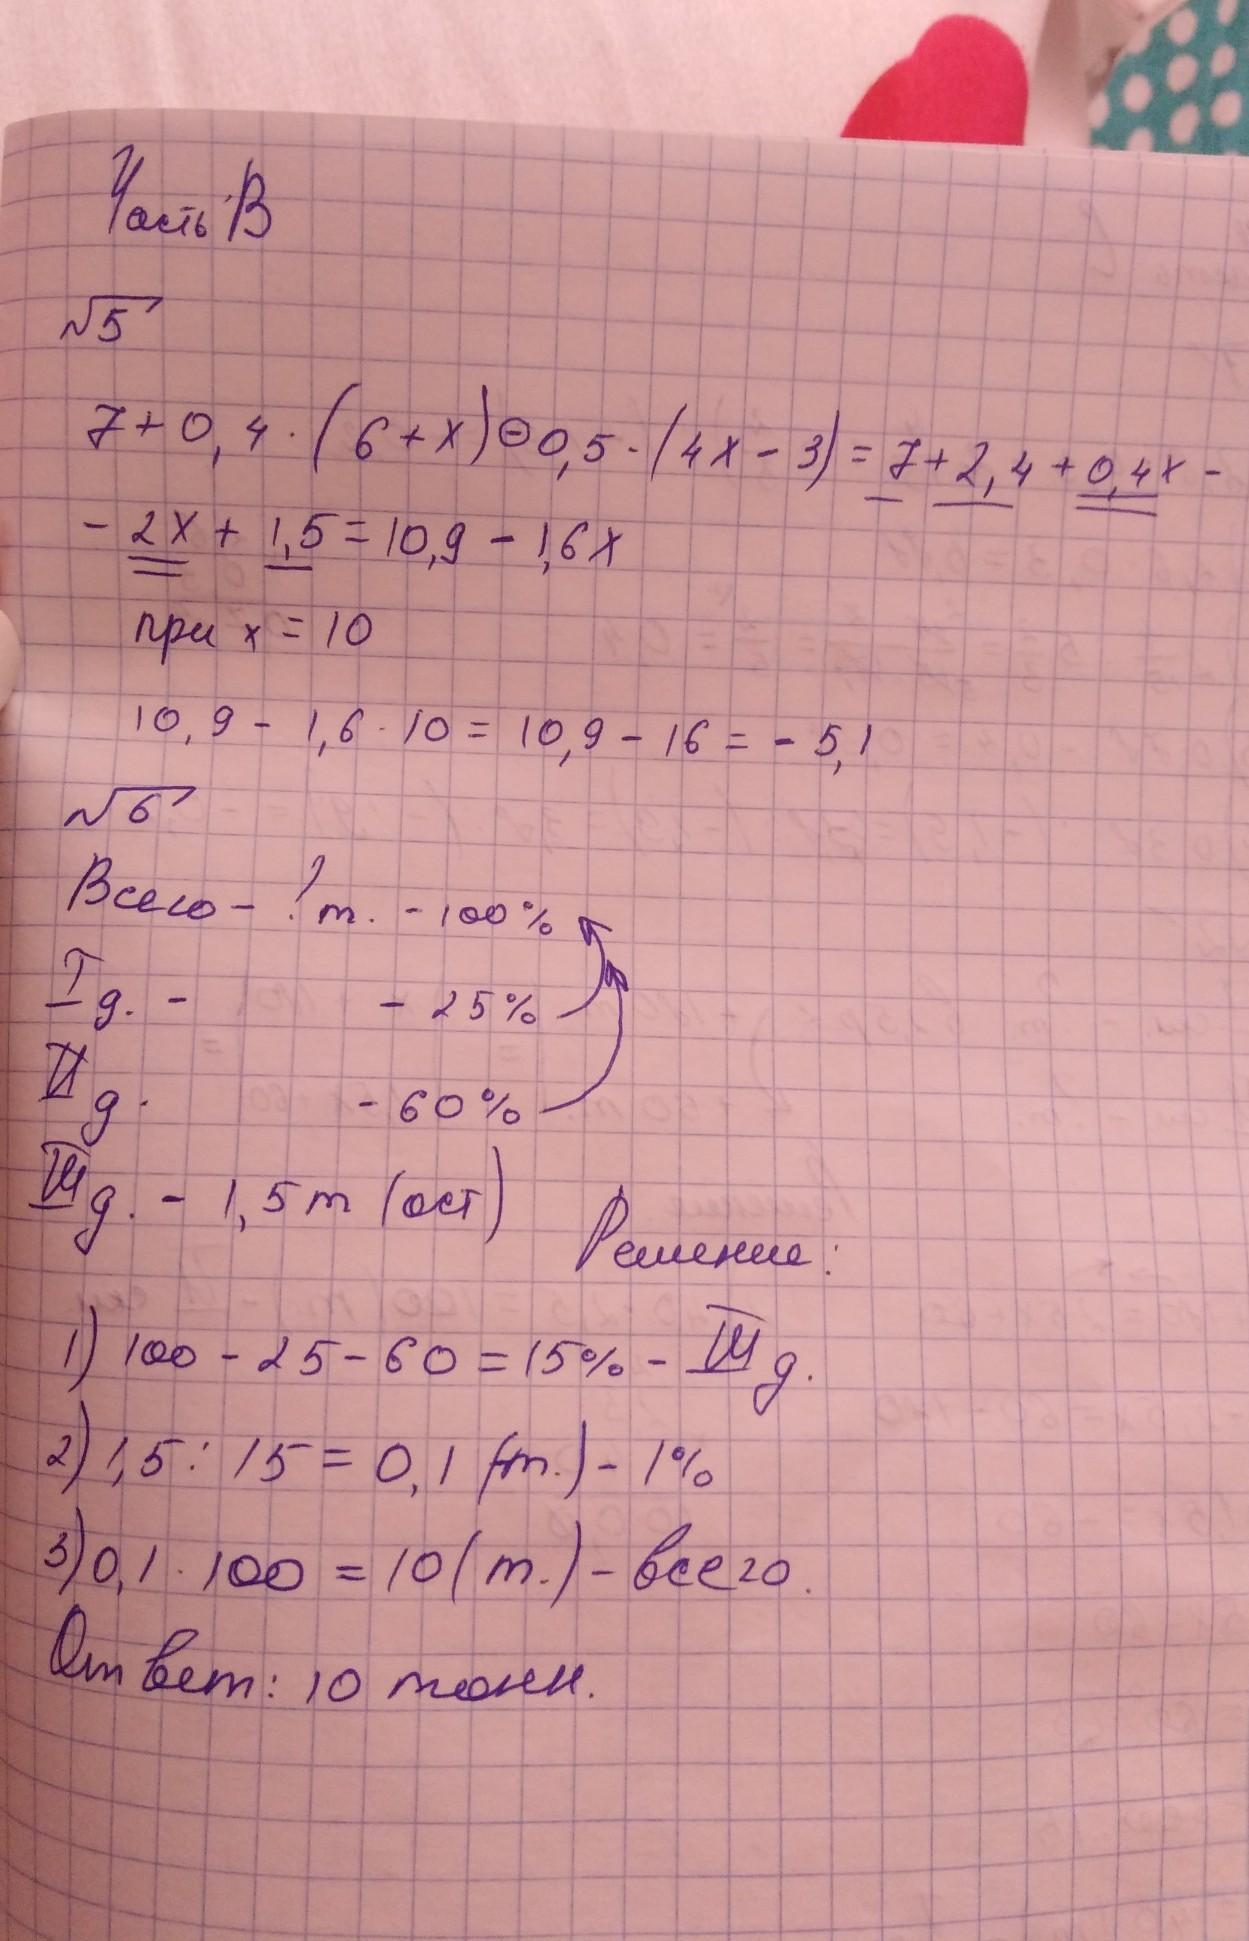 Часть В
√5
7+0,4·(6+x)⊖0,5·(4x-3)=7+2,4+0,4x-
-2x+1,5=10,9-1,6x
при x=10
10,9-1,6·10=10,9-16=-5,1
√6
Всего-?т.-100%
I д. - - 25%
II д. - 60%
III д. - 1,5т (ост)
Решение:
1) 100-25-60=15%-III д.
2) 1,5:15=0,1 (т.)-1%
3) 0,1·100=10(т.)-всего.
Ответ: 10 тонн.